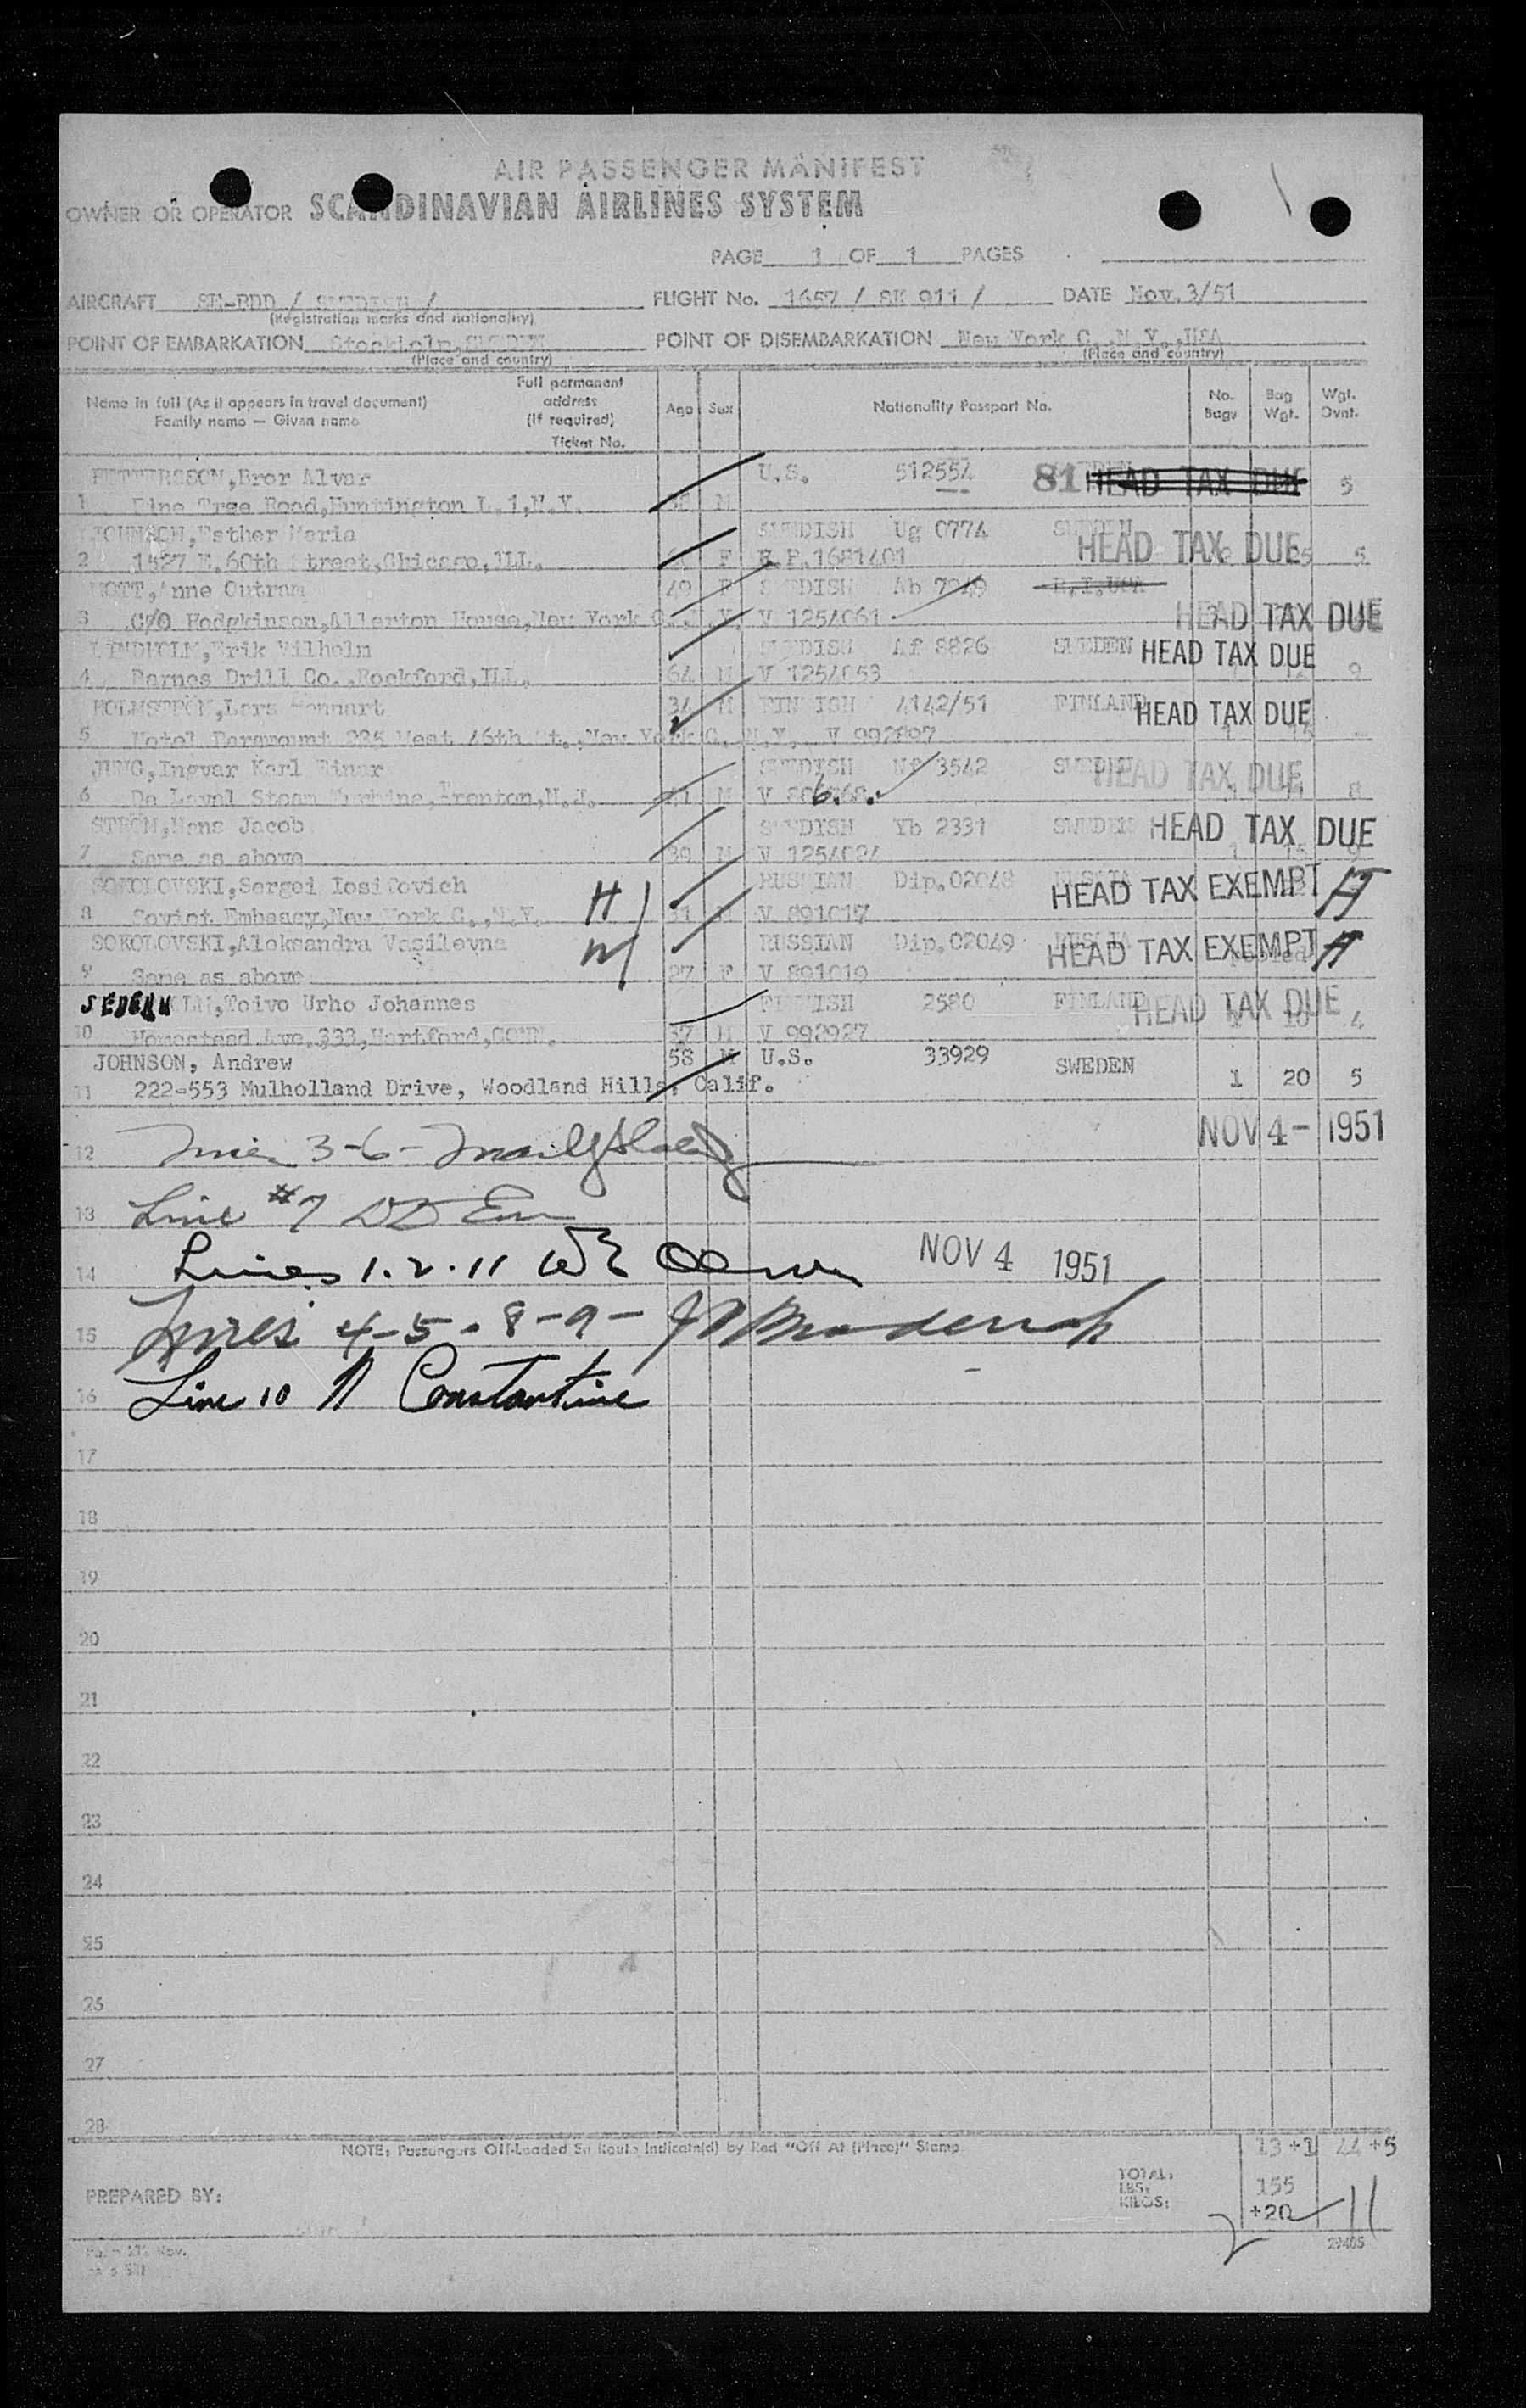 AIR PASSENGER MANIFEST
OWNER OR OPERATOR SCANDINAVIAN AIRLINES SYSTEM
PAGE 1 OF 1 PAGES
AIRCRAFT SE-BDD / SWEDISH / FLIGHT No. 1657 / SK 911 / DATE Nov.3/51
(Registration marks and nationality)
POINT OF EMBARKATION Stockholm,SWEDEN POINT OF DISEMBARKATION New York C.,N.Y.,USA
(Place and country) (Place and country)
Name in full (As it appears in travel document)
Family name — Given name
Full permanent
address
(If required)
Ticket No.
Age Sex Nationality Passport No. No. Bags Bag Wgt. Wgt. Ovnt.
PETTERSSON,Bror Alvar U.S. 512554 81 HEAD TAX DUE 5
1 Pine Tree Road,Huntington L.I,N.Y. M
JOHNSON,Esther Maria SWEDISH Ug 0774 SWEDEN HEAD TAX DUE
2 1527 E.60th Street,Chicago,ILL. F R.P.1681401 5
MOTT,Anne Outram 49 F SWEDISH Ab 7949 R.I,USA
3 C/O Hodgkinson,Allerton House,New York C.,N.Y. V 1254061 HEAD TAX DUE
LINDHOLM,Erik Vilhelm SWEDISH Af 8826 SWEDEN HEAD TAX DUE
4 Barnes Drill Co.,Rockford,ILL. 64 M V 1254053 9
HOLMSTRÖM,Lars Lennart 34 M FINNISH 4142/51 FINLAND HEAD TAX DUE
5 Hotel Paramount 235 West 46th St.,New York C. N.Y. V 992897
JUNG,Ingvar Karl Einar SWEDISH Nf 3542 SWEDEN HEAD TAX DUE
6 De Laval Steam Turbine,Trenton,N.J. M V 8 6. 8
STRÖM,Hans Jacob SWEDISH Yb 2331 SWEDEN HEAD TAX DUE
7 Same as above 39 M V 1254024 1
SOKOLOVSKI,Sergei Iosifovich H RUSSIAN Dip.02048 RUSSIA HEAD TAX EXEMPT
8 Soviet Embassy,New York C.,N.Y. 31 M V 891017
SOKOLOVSKI,Aleksandra Vasilevna W RUSSIAN Dip.02049 RUSSIA HEAD TAX EXEMPT
9 Same as above 27 F V 891019
SEDERHOLM,Toivo Urho Johannes FINNISH 2580 FINLAND HEAD TAX DUE
10 Homestead Ave.333,Hartford,CONN. 37 M V 992927 10 4
JOHNSON, Andrew 58 M U.S. 33929 SWEDEN 1 20 5
11 222-553 Mulholland Drive, Woodland Hills, Calif.
NOV 4 - 1951
12 3-6-
13 Line #7
14 Lines 1.2.11 NOV 4 1951
15 Lines 4-5-8-9-
16 Line 10 N Constantine
17
18
19
20
21
22
23
24
25
26
27
28
NOTE: Passengers Off-Loaded En Route Indicate(d) by Red "Off At (Place)" Stamp
13 +1 44 +5
PREPARED BY: TOTAL:
LBS: 155
KILOS: +20 11
2
29405